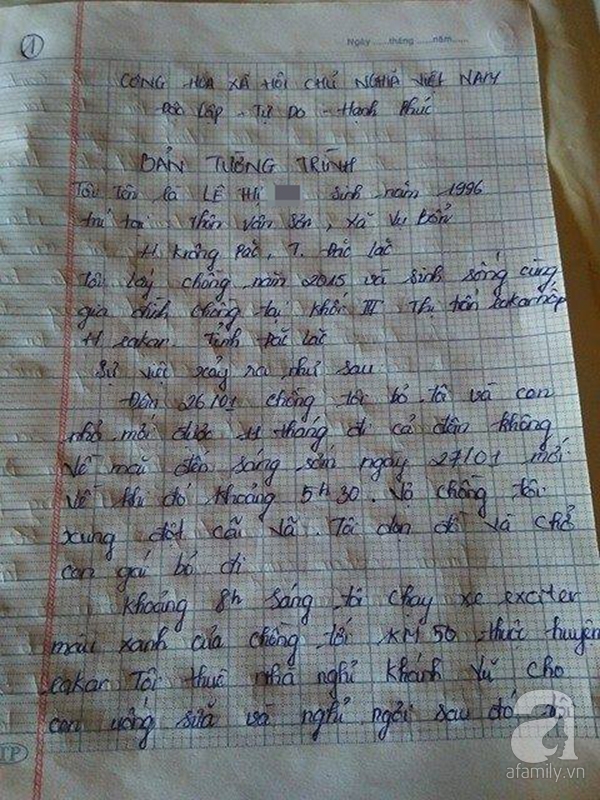 1
Ngày.....tháng.....năm.....
CỘNG HÒA XÃ HỘI CHỦ NGHĨA VIỆT NAM
Độc Lập - Tự Do - Hạnh Phúc
BẢN TƯỜNG TRÌNH
Tôi tên là LÊ THỊ sinh năm 1996
trú tại Thôn Vân Sơn, xã Vụ Bổn
H Krông Pắc, T. Đắc Lắc
Tôi lấy chồng năm 2015 và sinh sống cùng
gia đình chồng tại khối III Thị trấn eakarnốp
H eakar. Tỉnh Đắc Lắc
Sự việc xảy ra như sau.
Đêm 26/01 chồng tôi bỏ tôi và con
nhỏ mới được 11 tháng đi cả đêm không
về mãi đến sáng sớm ngày 27/01 mới
về khi đó khoảng 5h30. Vợ chồng tôi
xung đột cãi vã. Tôi dọn đồ và chở
con gái bỏ đi
Khoảng 8h sáng tôi chạy xe exciter
màu xanh của chồng tới KM 50 thuộc huyện
eakar Tôi thuê nhà nghỉ Khánh Vũ cho
con uống sữa và nghỉ ngơi sau đó
TP
a
afamily.vn